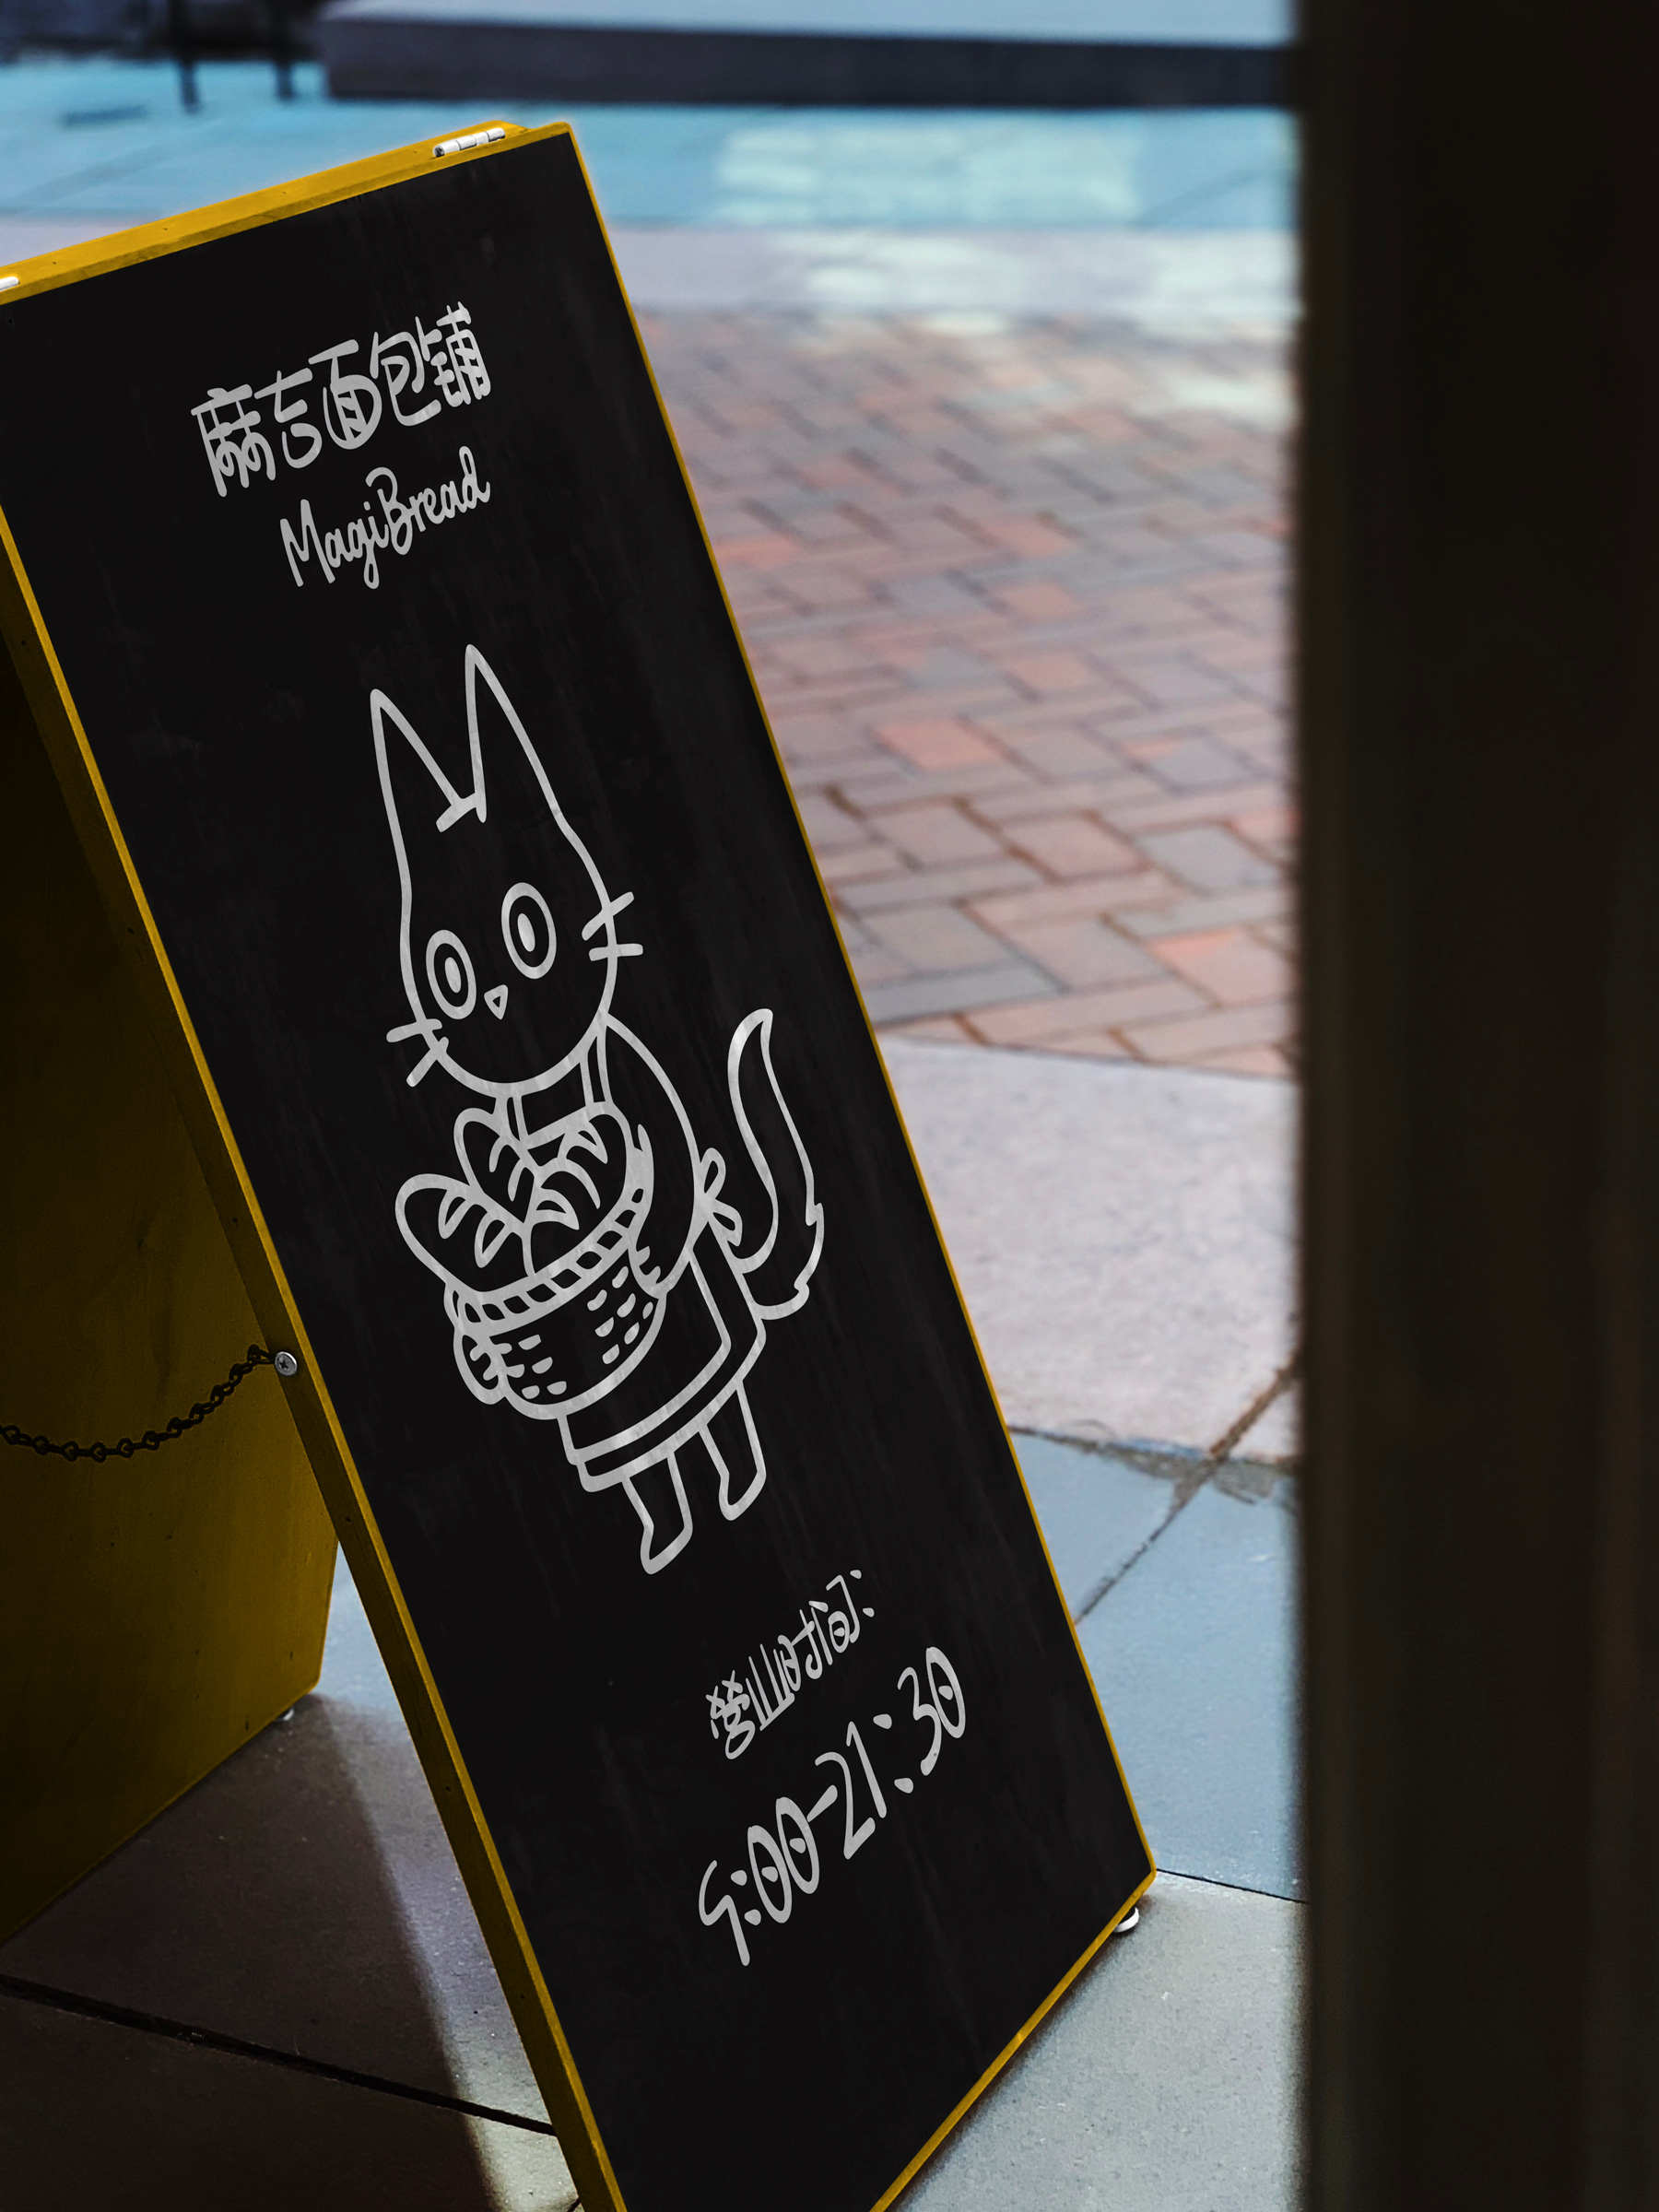 麻吉面包铺
MagiBread
营业时间:
9:00-21:30